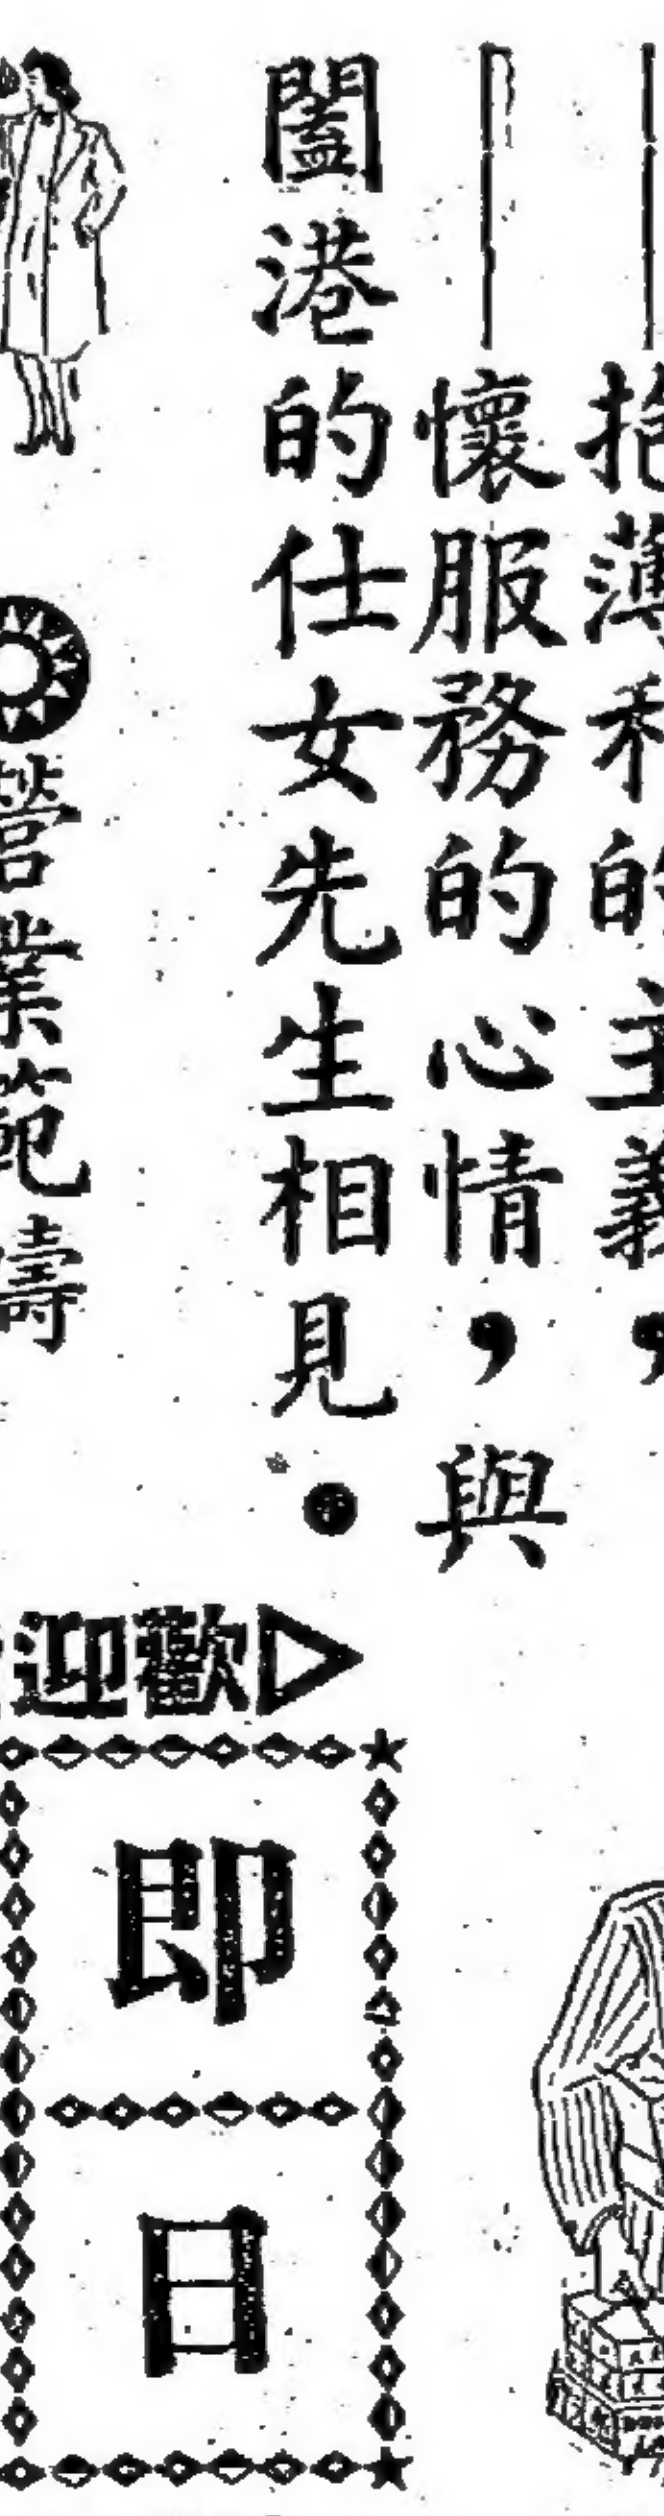 抱薄利的主義，
懷服務的心情，與
闔港的仕女先生相見。
營業範疇
歡迎
即
日